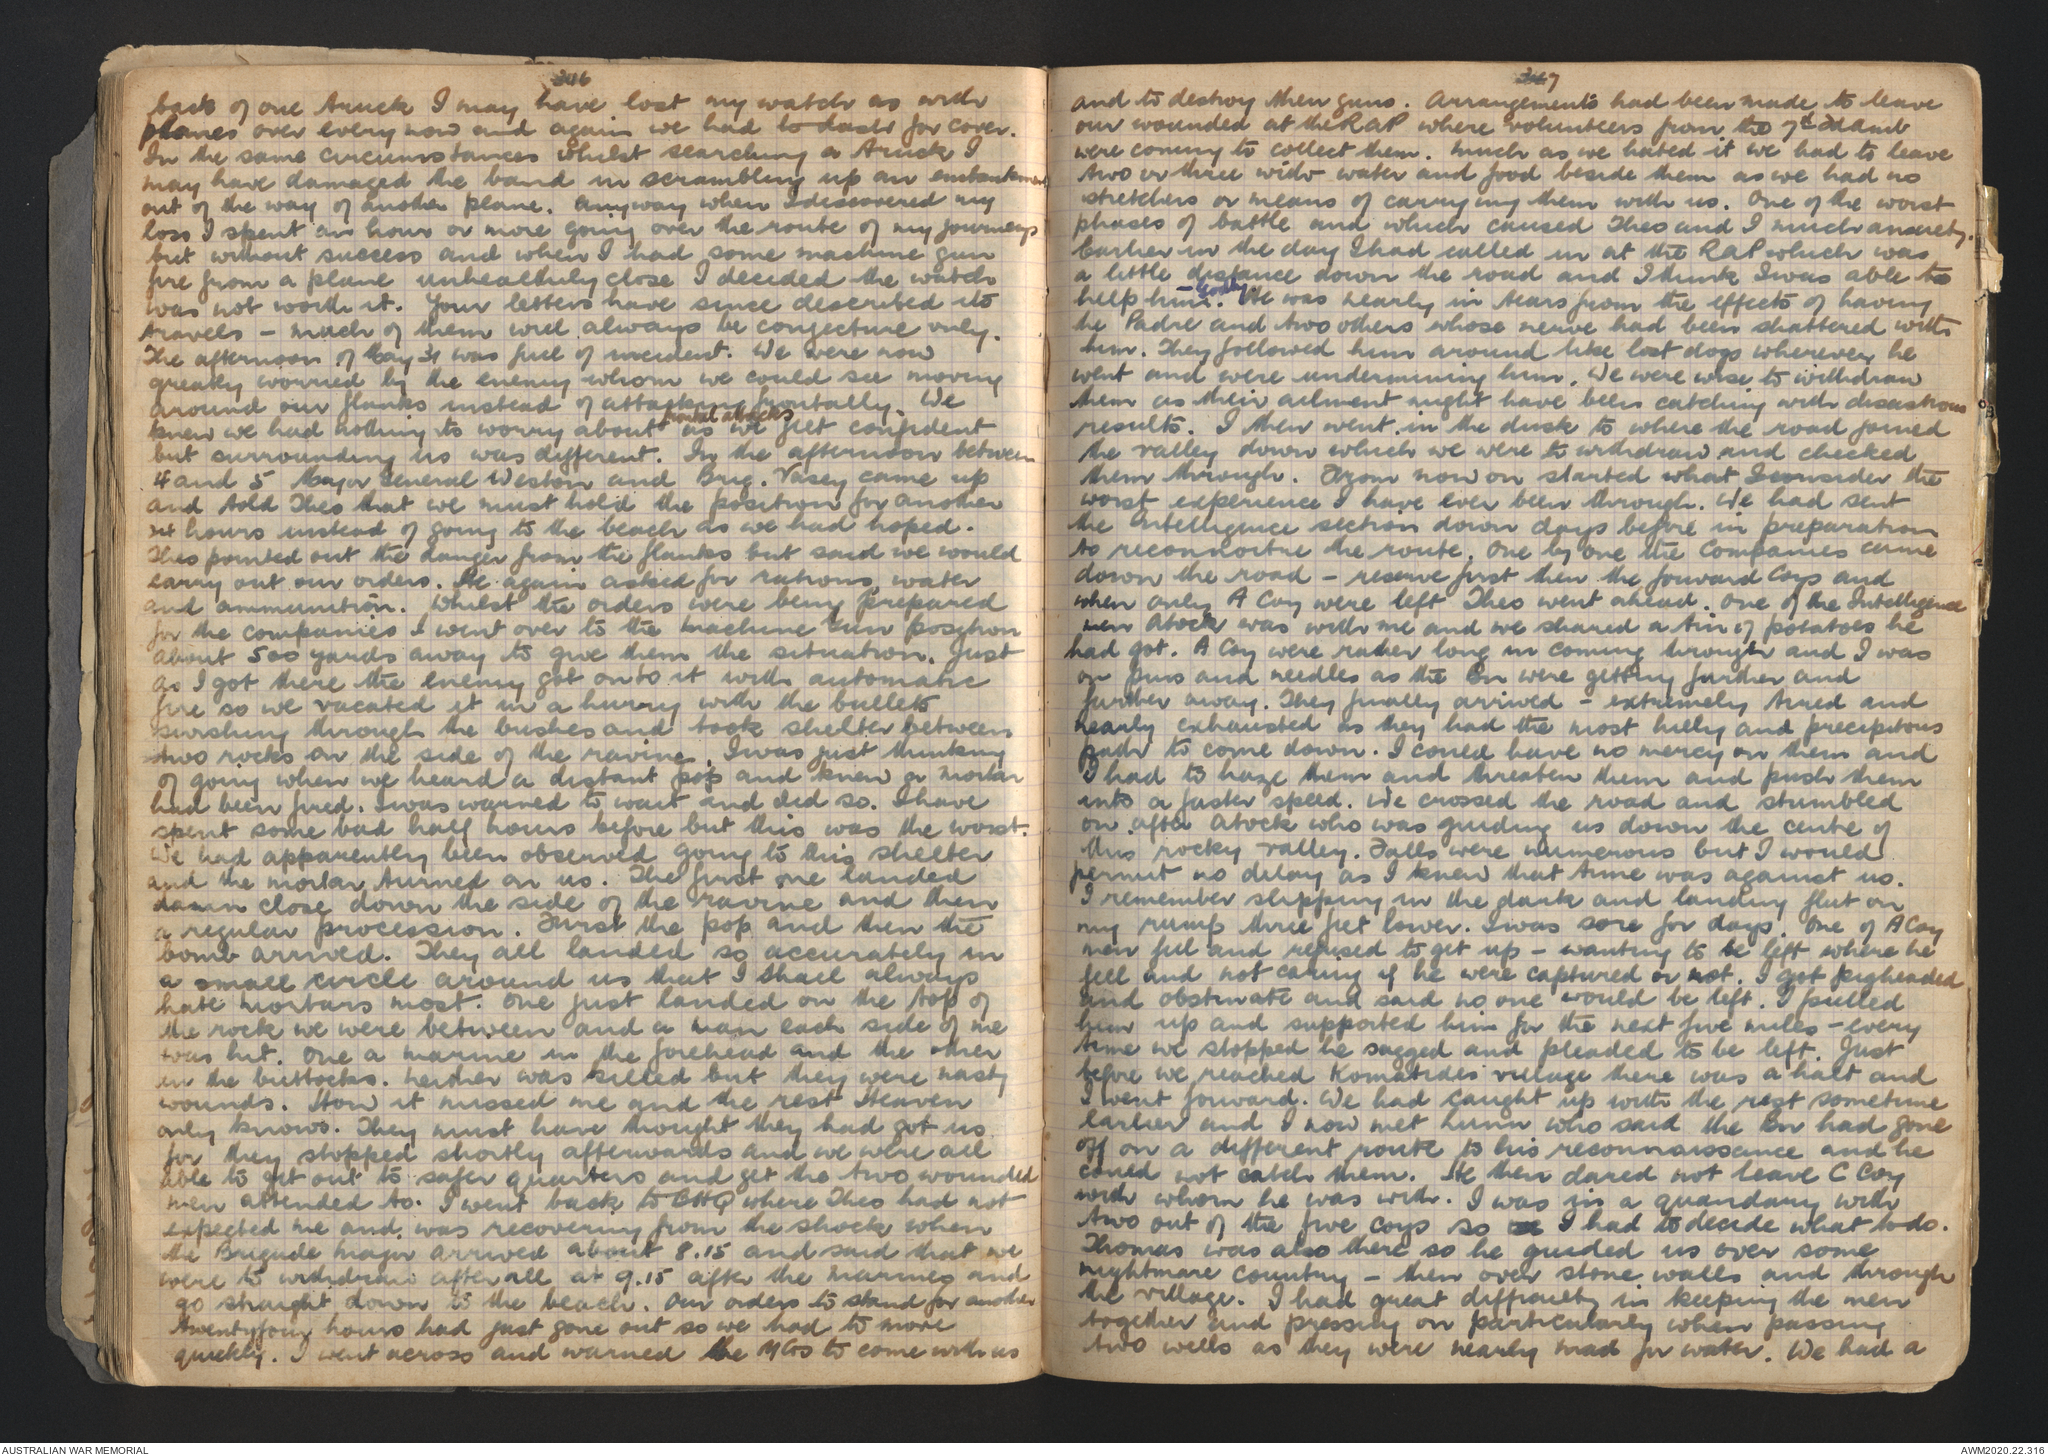 346
back of one truck I may have lost my watch as with
planes over every now and again we had to dash for cover.
In the same circumstances whilst searching a truck I
may have damaged the band in scrambling up an embankment
out of the way of another plane. Anyway when I discovered my
loss I spent an hour or more going over the route of my journeys
but without success and when I had some machine gun
fire from a plane unhealthily close I decided the watch
was not worth it. Your letters have since described its
travels – much of them will always be conjecture only.
The afternoon of May 31 was full of incident. We were now
greatly worried by the enemy whom we could see moving
around our flanks instead of attacking frontally. We
frontal attacks
knew we had nothing to worry about as we felt confident
but surrounding us was different. In the afternoon between
4 and 5 Major General Weston and Brig. Vasey came up
and told Theo that we must hold the position for another
24 hours instead of going to the beach as we had hoped.
Theo pointed out the danger from the flanks but said we would
carry out our orders. He again asked for rations, water
and ammunition. Whilst the orders were being prepared
for the companies I went over to the Machine Gun position
about 500 yards away to give them the situation. Just
as I got there the enemy got onto it with automatic
fire so we vacated it in a hurry with the bullets
swishing through the bushes and took shelter between
two rocks on the side of the ravine. I was just thinking
of going when we heard a distant pop and knew a mortar
had been fired. I was warned to wait and did so. I have
spent some bad half hours before but this was the worst.
We had apparently been observed going to this shelter
and the mortar turned on us. The first one landed
damn close down the side of the ravine and then
a regular procession. First the pop and then the
bomb arrived. They all landed so accurately in
a small circle around us that I shall always
hate mortars most. One just landed on the top of
the rock we were between and a man each side of me
was hit. One a marine in the forehead and the other
in the buttocks. Neither was killed but they were nasty
wounds. How it missed me and the rest Heaven
only knows. They must have thought they had got us
for they stopped shortly afterwards and we were all
able to get out to safer quarters and get the two wounded
men attended to. I went back to BHQ where Theo had not
expected me and was recovering from the shock when
the Brigade Major arrived about 8.15 and said that we
were to withdraw after all at 9.15 after the marines and
go straight down to the beach. Our orders to stand for another
twentyfour hours had just gone out so we had to move
quickly. I went across and warned the MGs to come with us
347
and to destroy their guns. Arrangements had been made to leave
our wounded at the RAP where volunteers from the 7th Fd Amb
were coming to collect them. Much as we hated it we had to leave
two or three with water and food beside them as we had no
stretchers or means of carrying them with us. One of the worst
phases of battle and which caused Theo and I much anxiety.
Earlier in the day I had called in at the RAP which was
a little distance down the road and I think I was able to
help him. He was nearly in tears from the effects of having
the Padre and two others whose nerve had been shattered with
him. They followed him around like lost dogs wherever he
went and were undermining him. We were wise to withdraw
them as their ailment might have been catching with disastrous
results. I then went in the dusk to where the road joined
the valley down which we were to withdraw and checked
them through. From now on started what I consider the
worst experience I have ever been through. We had sent
the Intelligence section down days before in preparation
to reconnoitre the route. One by one the companies came
down the road – reserve first then the forward Coys and
when only A Coy were left Theo went ahead. One of the Intelligence
men Atock was with me and we shared a tin of potatoes he
had got. A Coy were rather long in coming through and I was
on pins and needles as the Bn were getting further and
further away. They finally arrived – extremely tired and
nearly exhausted as they had the most hilly and precipitous
path to come down. I could have no mercy on them and
I had to haze them and threaten them and push them
into a faster speed. We crossed the road and stumbled
on after Atock who was guiding us down the centre of
this rocky valley. Falls were numerous but I would
permit no delay as I knew that time was against us.
I remember slipping in the dark and landing flat on
my rump three feet lower. I was sore for days. One of A Coy
men fell and refused to get up – wanting to be left where he
fell and not caring if he were captured or not. I got pigheaded
and obstinate and said no one would be left. I pulled
him up and supported him for the next five miles – every
time we stopped he sagged and pleaded to be left. Just
before we reached Komatides village there was a halt and
I went forward. We had caught up with the rest sometime
earlier and I now met Lunn who said the Bn had gone
off on a different route to his reconnaissance and he
could not catch them. He then dared not leave C Coy
with whom he was with. I was in a quandary with
two out of the five coys so I had to decide what to do.
Thomas was also there so he guided us over some
nightmare country – then over stone walls and through
the village. I had great difficulty in keeping the men
together and pressing on particularly when passing
two wells as they were nearly mad for water. We had a
AUSTRALIAN WAR MEMORIAL
AWM2020.22.316